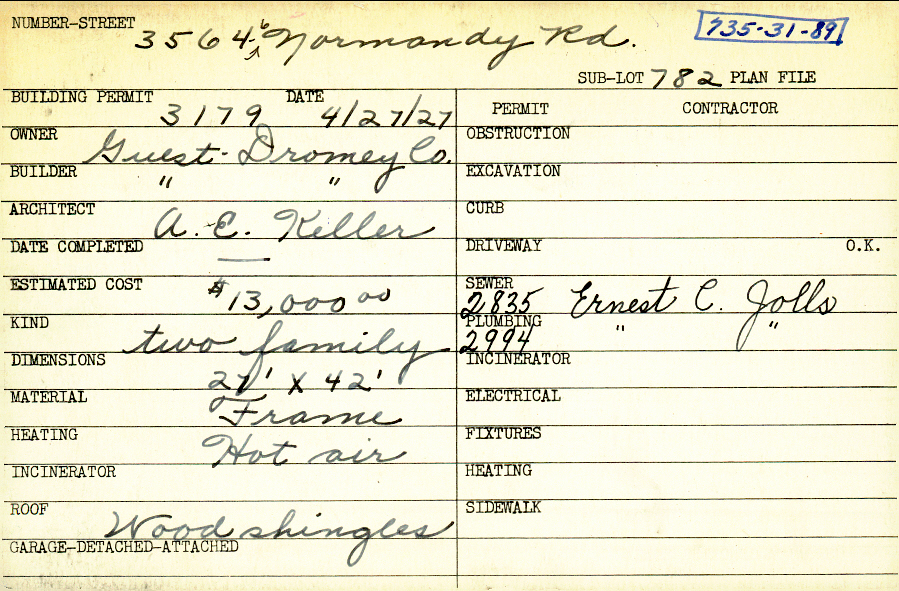 NUMBER-STREET 3564-6 Normandy Rd. 735-31-89
SUB-LOT 782 PLAN FILE
BUILDING PERMIT 3179 DATE 4/27/27
PERMIT CONTRACTOR
OWNER Guest-Dromey Co.
OBSTRUCTION
BUILDER " "
EXCAVATION
ARCHITECT A. E. Keller
CURB
DATE COMPLETED —
DRIVEWAY O.K.
ESTIMATED COST $13,000 00
SEWER 2835 Ernest C. Jolls
KIND two family
PLUMBING 2994 " "
DIMENSIONS 27' X 42'
INCINERATOR
MATERIAL Frame
ELECTRICAL
HEATING Hot air
FIXTURES
INCINERATOR
HEATING
ROOF Wood shingles
SIDEWALK
GARAGE-DETACHED-ATTACHED